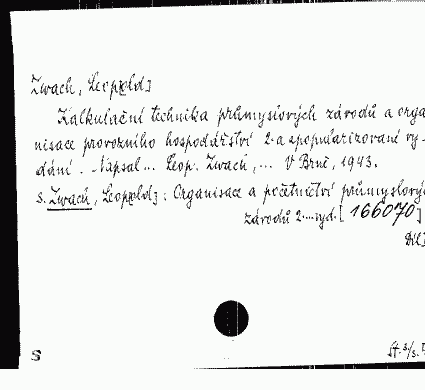 Zwach, Leopold]
Kalkulační technika průmyslových závodů a orga
nisace provozního hospodářství 2. a zpopularizované vy-
dání. Napsal... Leop. Zwach,... V Brně, 1943.
s. Zwach, Leopold]: Organisace a početnictví průmyslový
závodů 2....vyd. [166070]
Díl
S